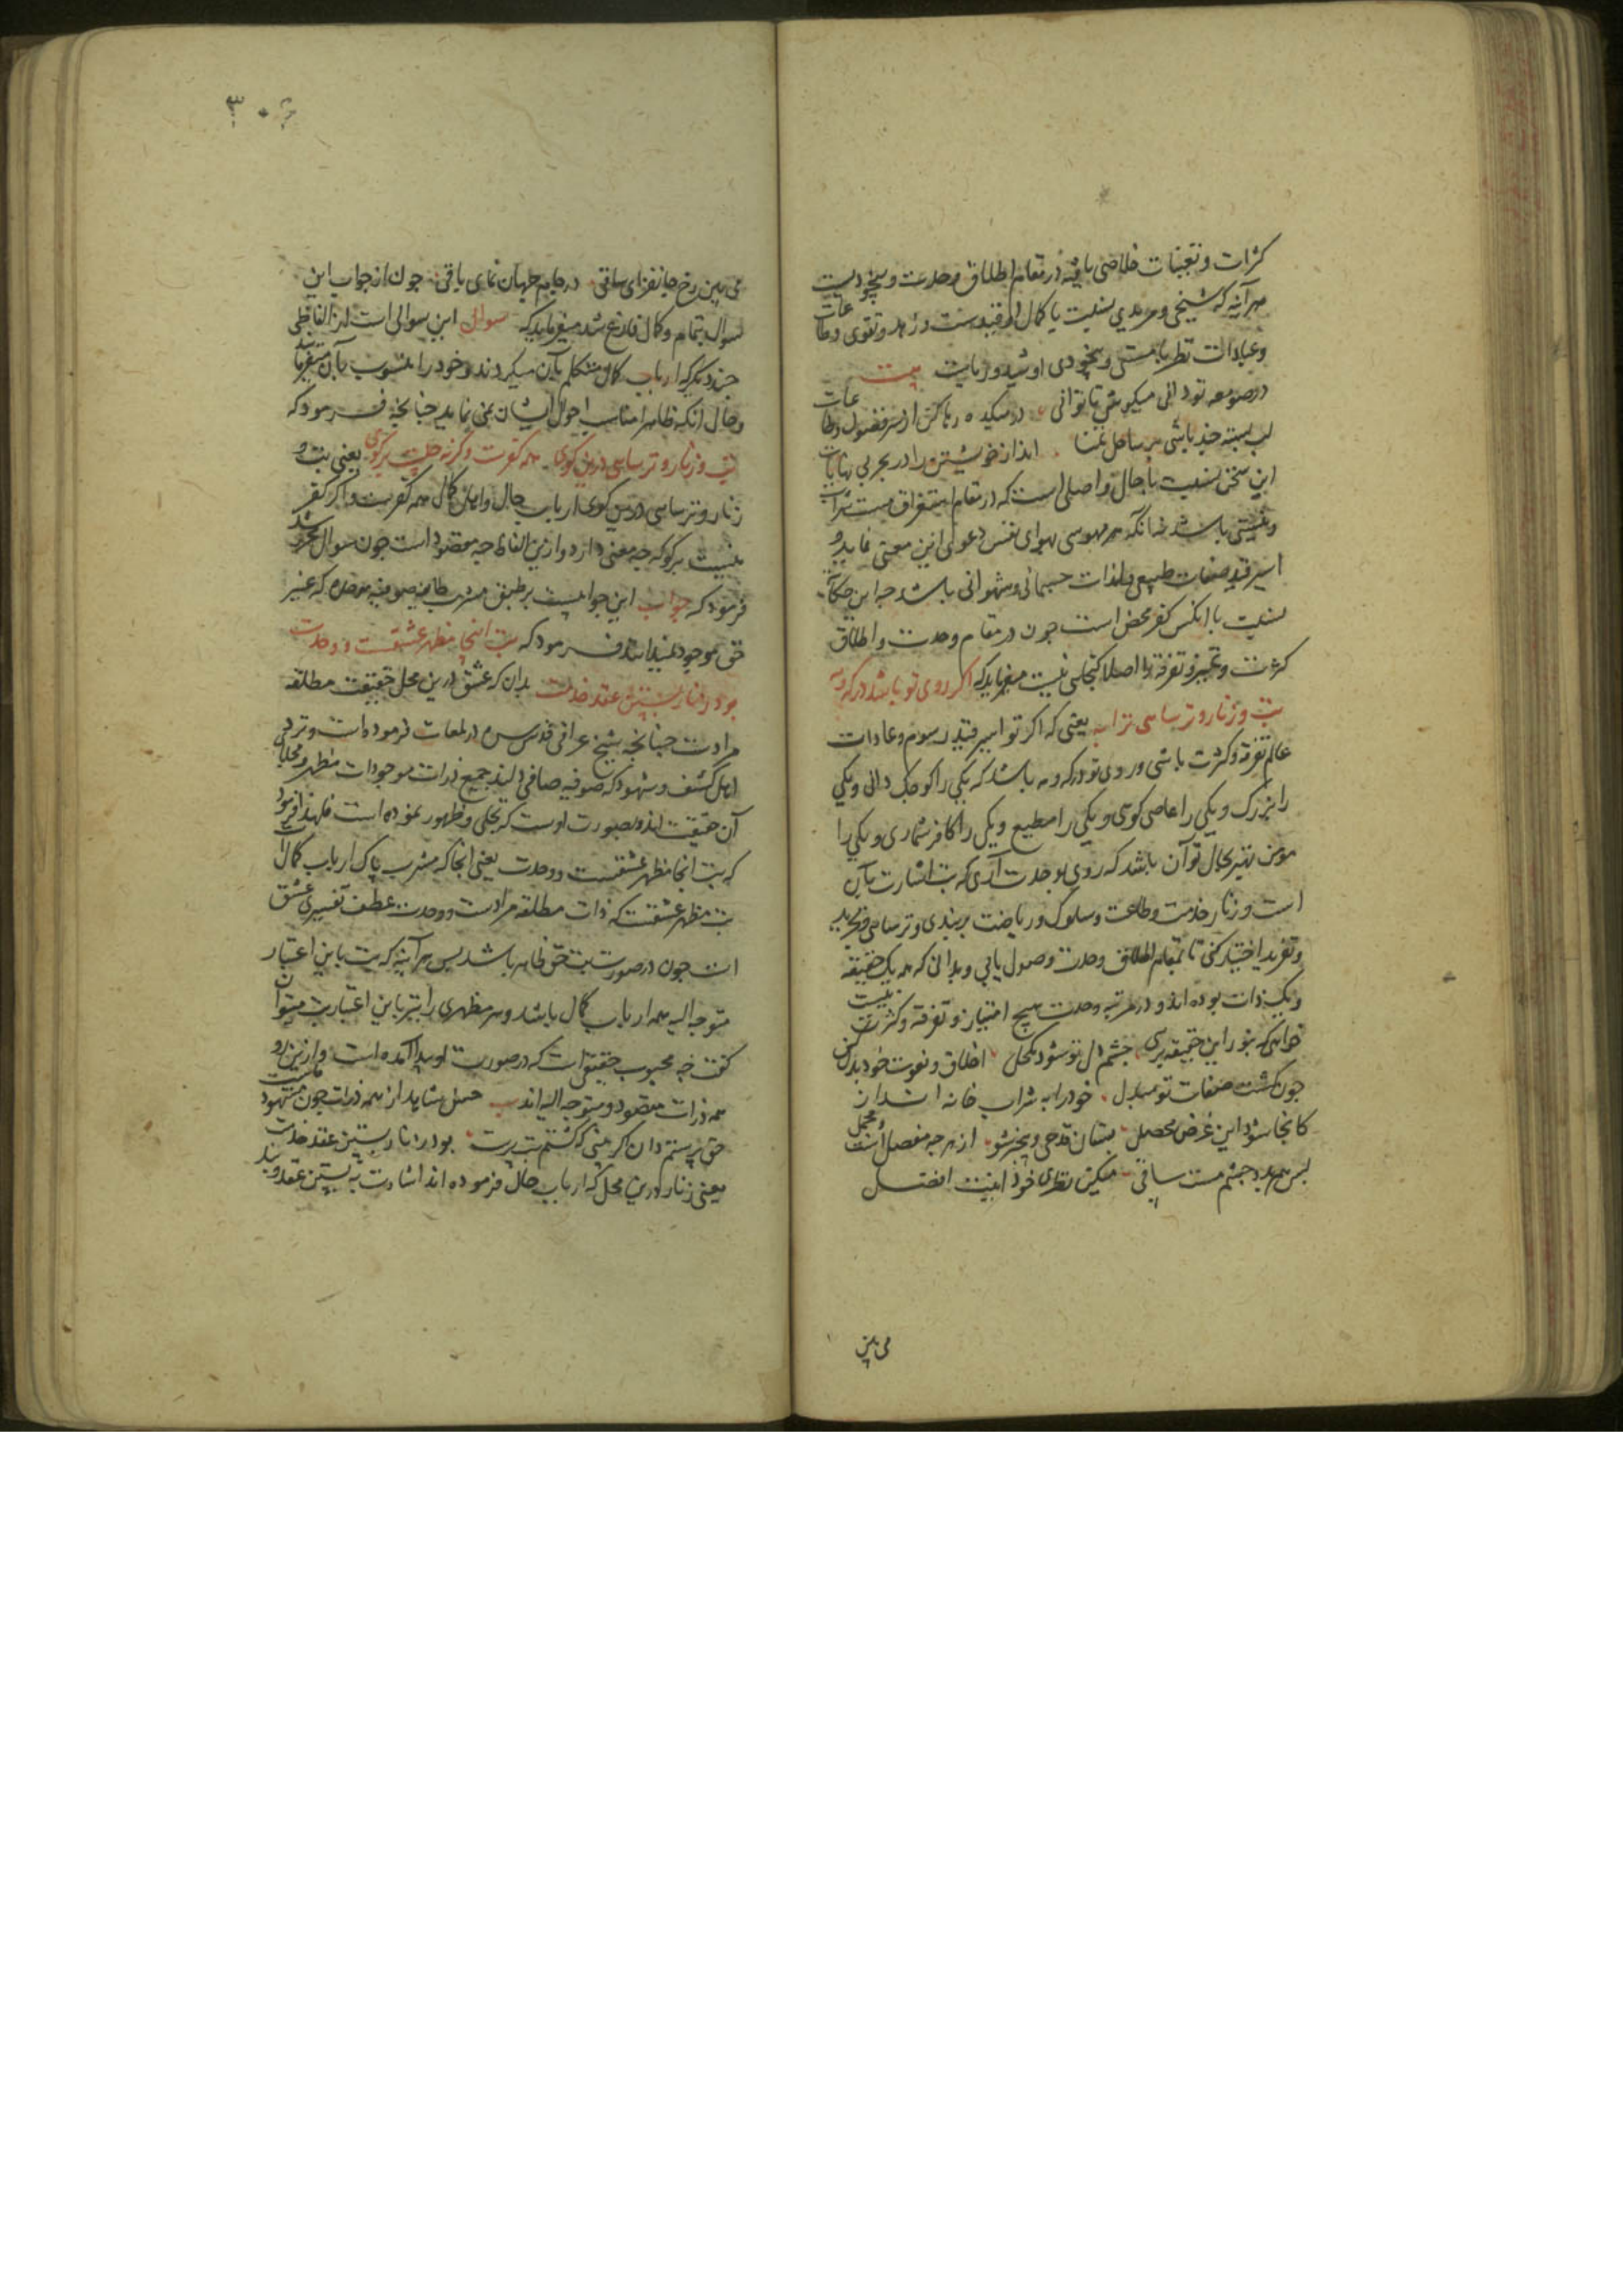 کثرات و تعینات خلاصی یافته در مقام اطلاق وحدت و بیخودیست
هر آینه که شیخی و مریدی نسبت با کمال او قیدست و زهد و تقوی و طاعات
و عبادات نظر با مستی و بیخودی او شید و زیاست بیت
در صومعه تو دانی میکوش تا توانی در میکده رها کن از سر فضول و طاعات
لب بسته چند باشی بر ساحل تمنا انداز خویشتن را در بحر بی نهایات
این سخن نسبت با حال واصلی است که در مقام استغراق مست شراب
و نیستی باشد نه آنکه هر بهوسی بهوای نفس دعوی این معنی نماید و
اسیر قید صفات طبیعی و لذات جسمانی و شهوانی باشد چه این حکایت
نسبت با آنکس کفر محض است چون در مقام وحدت و اطلاق
کثرت و تمیز و تفرقه را اصلا گنجایی نیست میفرماید که اگر روی تو باشد در که و مه
بت و زنار و ترسایی ترا به یعنی که اگر تو اسیر قید رسوم و عادات
عالم تفرقه و کثرت باشی و روی تو در که و مه باشد که یکی را کوچک دانی و یکی
را بزرگ و یکی را عاصی گویی و یکی را مطیع و یکی را کافر شماری و یکی را
مومن بهتر بحال تو آن باشد که روی بوحدت آری که بت اشارت بآن
است و زنار خدمت و طاعت و سلوک و ریاضت بربندی و ترسایی و تجرید
و تفرید اختیار کنی تا بمقام اطلاق وحدت وصول یابی و بدانی که همه یک حقیقة
و یک ذات بوده اند و در مرتبه وحدت هیچ امتیاز و تفرقه و کثرت نیست
خواهی که بنور این حقیقه برسی چشم دل تو شود مکحل اخلاق و نعوت خود بدل کن
چون گشت صفات تو مبدل خود را به شراب خانه انداز
کانجا شود این غرض محصل بستان قدحی و بیخبر شو از هر چه مفصل است و مجمل
پس هم بدو چشم مست ساقی میکن نظری خوذ اینیت افضل
می بین
۳۰۶
می بین رخ جانفزای ساقی در جام جهان نمای باقی چون از جواب این
سوال بتمام و کمال فارغ شد میفرماید که سوال این سوالی است از الفاظی
چند دیگر که ارباب کمال متکلم بآن میکردند و خود را منسوب بآن میفرمایند
و حال آنکه ظاهرا مناسب احوال ایشان نمی نماید چنانچه فرمود که
بت و زنار و ترسایی درین کوی همه کفرست و گرنه چیست برگوی یعنی بت و
زنار و ترسایی درین کوی ارباب حال و ایمان کمال همه کفرست و اگر کفر
نیست برگو که چه معنی دارد و ازین الفاظ چه مقصود است چون سوال تحریر شد
فرمود که جواب این جوابیست بر طبق مشرب طایفه صوفیه موحده که غیر
حق موجود نمیدانند فرمود که بت اینجا مظهر عشقست و وحدت
بود زنار بستن عقد خدمت بدان که عشق درین محل حقیقت مطلقه
مرادست چنانچه شیخ عراقی قدس سره در لمعات فرموده است و نزد
اهل کشف و شهود که صوفیه صافی دلند جمیع ذرات موجودات مظهر و مجلای
آن حقیقت اند و بصورت اوست که تجلی و ظهور نموده است فلهذا فرمود
که بت اینجا مظهر عشقست و وحدت یعنی اینجا که مشرب پاک ارباب کمال است
بت مظهر عشقست که ذات مطلقه مرادست و وحدت عطف تفسیری عشق
است چون در صورت بت حق ظاهر باشد پس هر آینه که بت باین اعتبار
متوجه الیه همه ارباب کمال باشد و هر مظهری را نیز باین اعتبار بت میتوان
گفت چه محبوب حقیقی است که در صورت او پیدا آمده است و ازین رو
همه ذرات مقصود و متوجه الیه اند حسن شاید از همه ذرات چون مشهود ماست
حق پرستم دان گر بینی که گشتم بت پرست بود زنار بستن عقد خدمت
یعنی زنار درین محل که ارباب حال فرموده اند اشارت به بستن عقد و بند